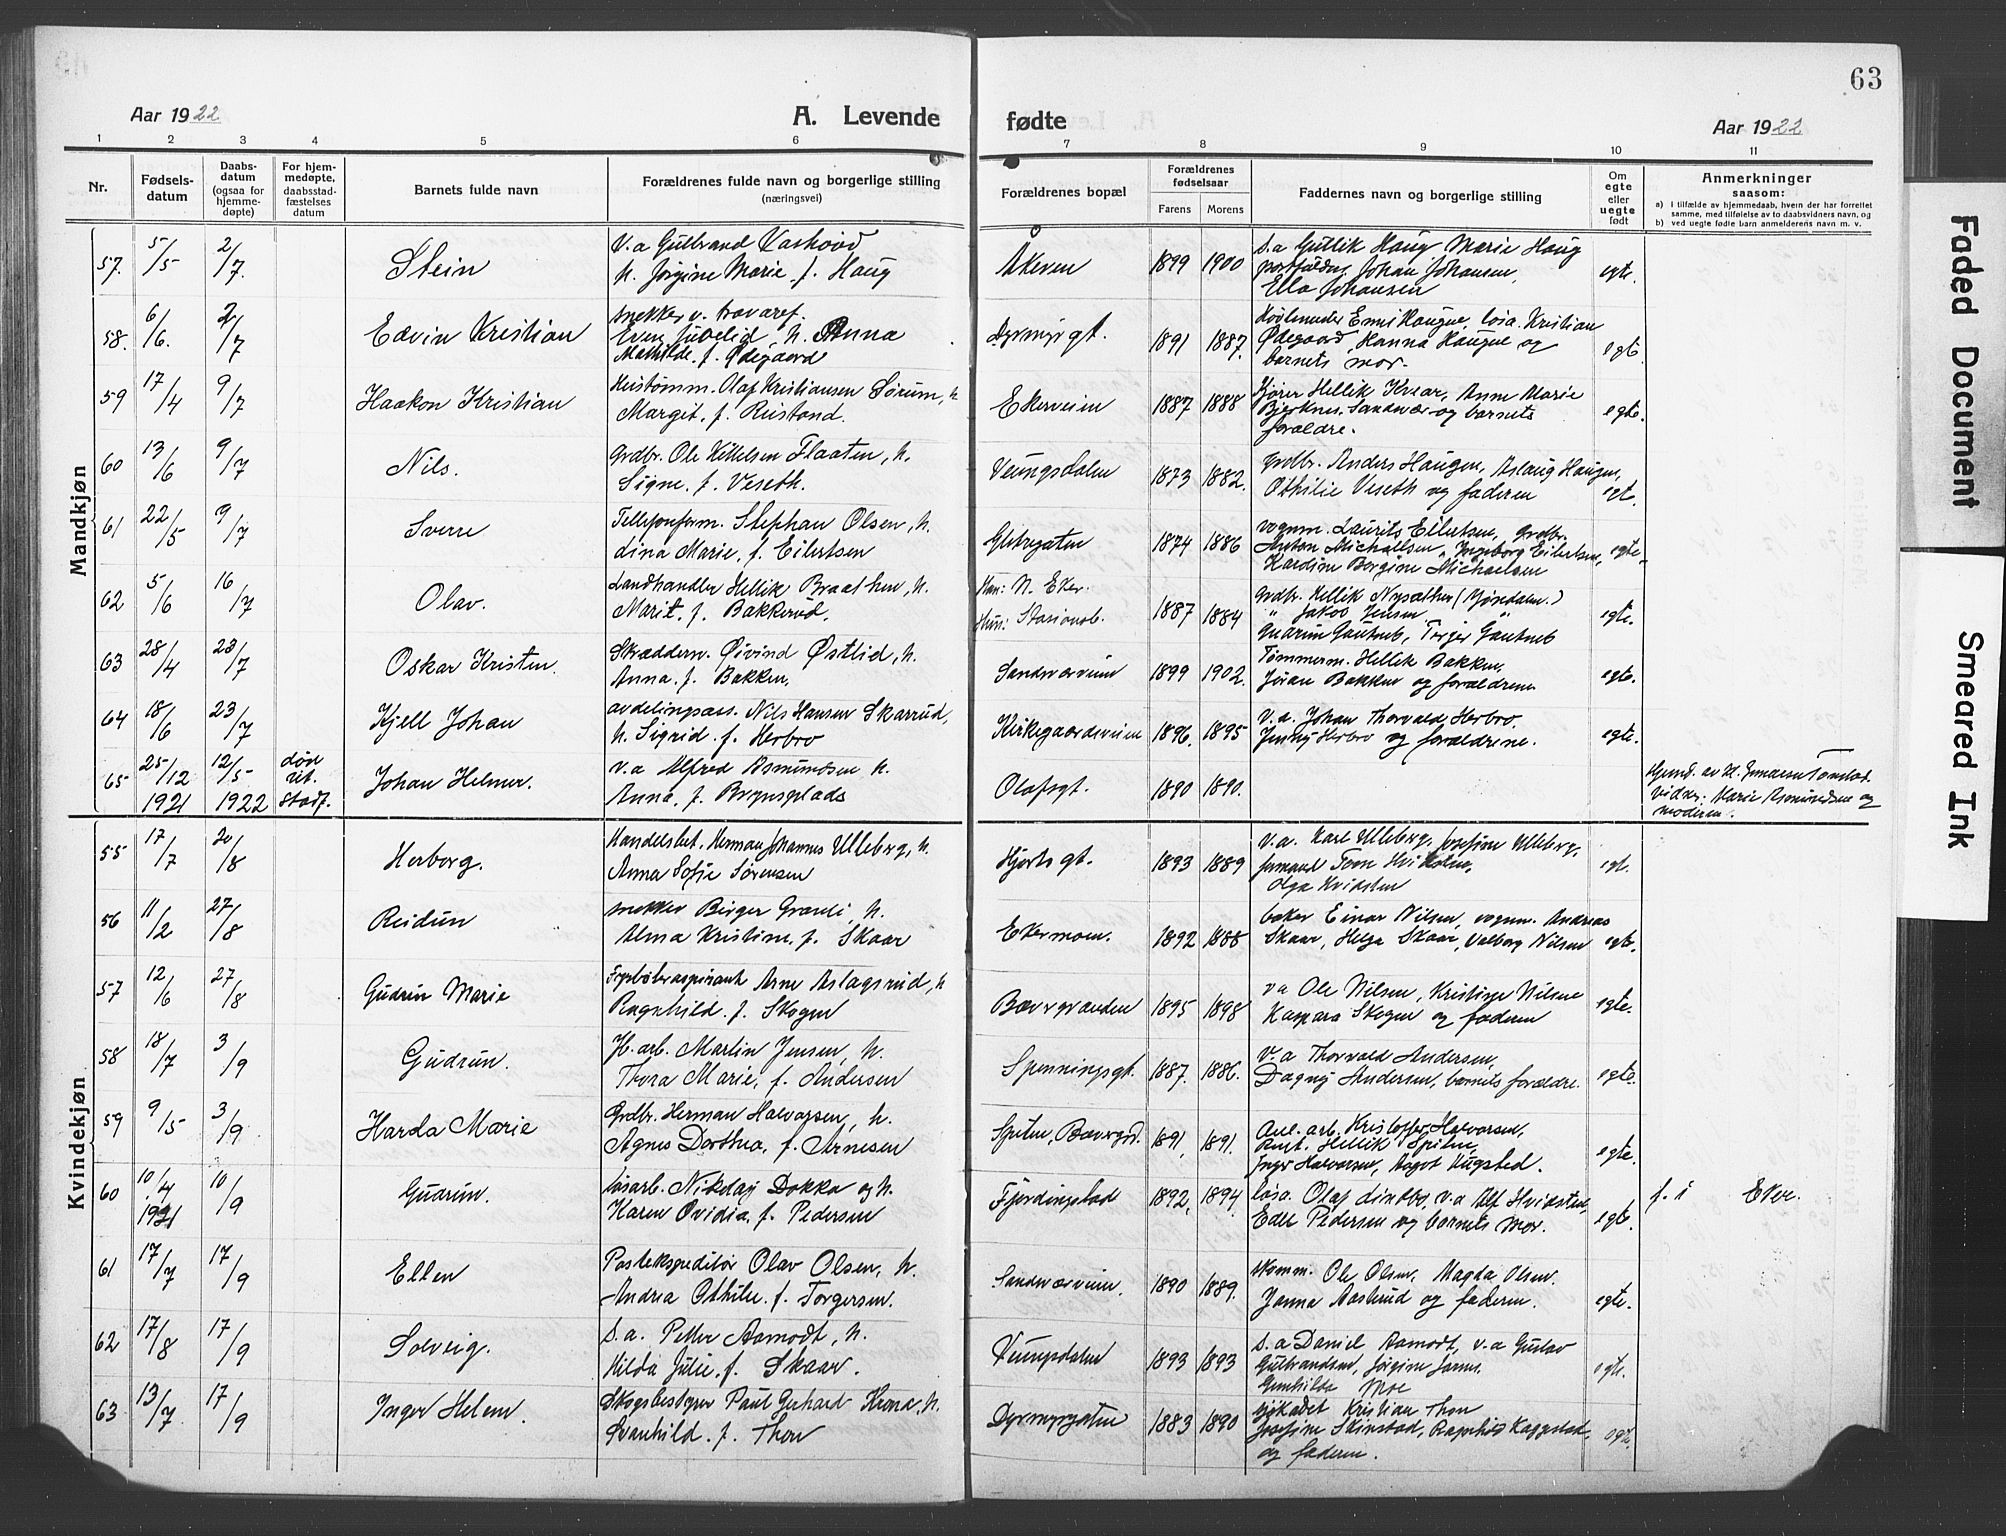 63
Aar 1922
A. Levende
fødte
Aar 1922
1 2 3 4 5 6 7 8 9 10 11
Nr.
Fødsels-
datum
Daabs-
datum
(ogsaa for
hjemme-
døpte)
For hjem-
medøpte,
daabsstad-
fæstelses
datum
Barnets fulde navn
Forældrenes fulde navn og borgerlige stilling
(næringsvei)
Forældrenes bopæl
Forældrenes
fødselsaar
Farens Morens
Faddernes navn og borgerlige stilling
Om
egte
eller
uegte
født
Anmerkninger
saasom:
a) i tilfælde av hjemmedaab, hvem der har forrettet
samme, med tilføielse av to daabsvidners navn, og
b) ved uegte født barn anmelderens navn m. v.
Mandkjøn
57. 5/5 2/7. Stein
V.a Gulbrand
h. Jørgine Marie f. Haug
1899 1900
s.a Gutlik Haug Marie Haug
Johan Johansen,
Ella Johansen
egte.
58. 6/6. 2/7 Edvin Kristian
snekker v. travaref.
Even Jubelid, h. Anna
Mathilde f. Ødegaard
Dyrmyrgt. 1891 1887.
løsa. Kristian
Ødegaard, Hanna Haugne og
barnets mor.
egte
59 17/4 9/7 Haakon Kristian
Olaf Kristiansen Sørum, h
Margit, f. Rustand.
Ekerveien 1887 1888
kjører Hellik Kvear, Anne Marie
Sandvær og barnets
forældre.
egte.
60 13/6 9/7 Nils.
Grdbr. Ole Kittelsen Flaaten, h.
Signe, f. Veseth.
Veungsdalen 1873 1882.
Grdbr. Anders Haugen, Aslaug Haugen,
Othilie Veseth og faderen
egte.
61 22/5 9/7 Sverre
Tellefonform. Stephan Olsen, h.
dina Marie, f. Eilertsen
Gitregaten 1874 1886
vognm. Laurits Eilertsen, grdbr.
Anton Michaelsen, Ingeborg Eilertsen,
Bergine Michaelsen
egte.
62 5/6 16/7 Olav.
Landhandler Hellik Braathen, h.
Marit, f. Bakkerud.
Han: N. Eker.
Hun: Stasionsb.
1887 1884
Grdbr. Hellik Nysæther (Jondalen.)
" Jakob Jensen
Gudrun Gautneb, Terjer Gautneb
egte.
63 28/4 23/7 Oskar Kristen.
Skædderm. Øivind Østlid, h.
Anna, f. Bakken.
Sandværveien 1899 1902.
Tømmerm. Hellik Bakken,
Jøran Bakken og forældrene
egte.
64 18/6 23/7 Kjell Johan
avdelingsass. Nils Hansen Skarrud,
h. Sigrid f. Herbro
Kirkegaardsveien 1896. 1895
V.a. Johan Thorvald Herbro,
Jenny Herbro og forældrene.
egte.
65 25/12 1921 12/5 1922 døn
ut.
stadf.
Johan Helmer.
V.a Alfred Asmundsen h.
Anna, f. Brynsplads
Olafsgt. 1890 1890.
Hjemd. av
vidner: Marie Asmundsen og
moderen.
Kvindekjøn
55 17/7 20/8 Herborg.
Handelsbet. Herman Johannes Ulleberg, h.
Anna Sofie Sørensen
Hjortsgt. 1893 1889
V.a. Karl Ulleberg, Josefine Ulleberg,
Olga Kvidsten
egt.
56 11/2 27/8 Reidun
snekker Birger h.
Alma Kristine, f. Skaar
Ekermoen. 1892 1888
baker Einar Nilsen, vognm. Andreas
Skaar, Helga Skaar, Valborg Nilsen
egte.
57 12/6 27/8 Gudrun Marie
Fyrbøteraspirant Arne Aslagsrud, h
Ragnhild. f. Skogen
Bævergranden 1895 1898
v a Ole Nilsen, Kristine Nilsen
Kaspara Skogen og faderen
egte.
58 18/7 3/9 Gudrun.
Jb. arb. Martin Jensen, h.
Thora Marie, f. Andersen
Spenningsgt. 1887. 1886.
V.a Thorvald Andersen,
Dagny Andersen, barnets forældre.
egte.
59 9/5 3/9 Harda Marie
Grdbr. Herman Halvorsen, h.
Agnes Dorthea, f. Arnesen
1891, 1891.
Anl. arb. Kristoffer Halvorsen,
Hellik Spiten,
Inger Halvorsen, Aagot Hugsted.
egte.
60 10/4 1921 10/9 Gudrun.
løsarb. Nikolay Dokka og h.
Karen Ovidia, f. Pedersen
Fjerdingstad 1892, 1894.
løsa. Olaf Lindbo, v.a Alf Hvidsted,
Edel Pedersen og barnets mor.
egte.
f. i Eker.
61 17/7 17/9 Ellen
Postekspeditør Olav Olsen, h.
Andrea Othilie. f. Torgersen.
Sandværveien. 1890 1889.
Ole Olsen, Magda Olsen.
Janna Aasterud og faderen.
egte.
62 17/8 17/9 Solveig.
S.a. Petter Aamodt, h.
Hilda Julie. f. Skaar.
Veungsdalen 1893 1893
S.a Daniel Aamodt, v.a Gustav
Gulbrandsen, Jørgine
Gunhilda Moe
egte.
63 13/7 17/9 Inger Helene.
Skogbestyrer Paul Gerhard Krona, h.
Svanhild. f. Thon
Dyrmyrgaten 1883 1890
Kristian Thon
Josefine Skinstad, Ragnhild Kaggestad,
og faderen.
egte.
Faded Document
Smeared Ink